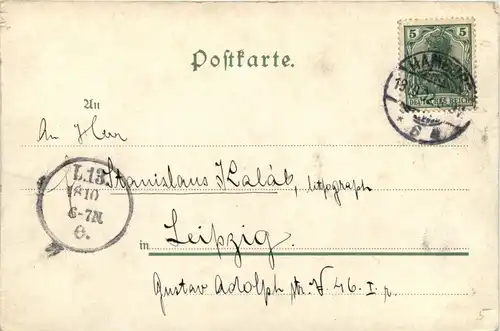 Postkarte.
5 5
HAMBURG
DEUTSCHES REICH
* 6
An
An Herr
Stanislaus Kaláb, litograph
L.13.
18 10
6-7N
O.
in Leipzig.
Gustav Adolph str. N 46. I. r.
5